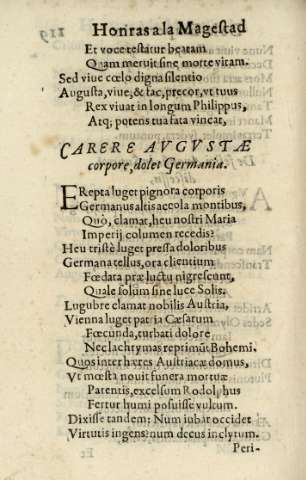 Honras a la Magestad
Et voce testatur beatam
Quam meruit sine morte vitam.
Sed viue cœlo digna silentio
Augusta, viue; & fac, precor, vt tuus
Rex viuat in longum Philippus,
Atq; potens tua fata vincat,
CARERE AVGVSTÆ
corpore, dolet Germania.
ERepta luget pignora corporis
Germanus altis accola montibus,
Quò, clamat, heu nostri Maria
Imperij columen recedis?
Heu tristè luget pressa doloribus
Germana tellus, ora clientium
Fœdata præ luctu nigrescunt,
Quale solum sine luce Solis.
Lugubre clamat nobilis Austria,
Vienna luget patria Cæsarum
Fœcunda, turbati dolore
Nec lachrymas reprimũt Bohemi.
Quos inter hæres Austriacæ domus,
Vt mœsta nouit funera mortuæ
Parentis, excelsum Rodolphus
Fertur humi posuisse vultum.
Dixisse tandem: Num iubar occidet
Virtutis ingens? num decus inclytum.
Peri-